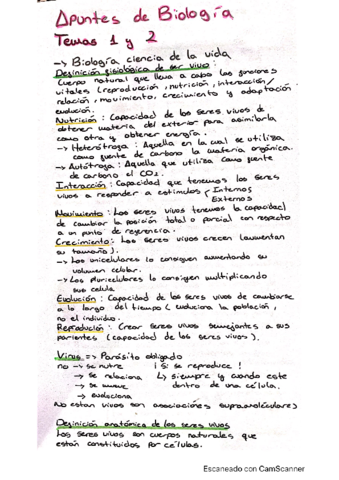 Apuntes de Biología
Temas 1 y 2
—> Biología, ciencia de la vida
Definición fisiológica de ser vivo:
Cuerpo natural que lleva a cabo las funciones
vitales (reproducción, nutrición, interacción/
relación, movimiento, crecimiento y adaptación
evolución.
Nutrición: Capacidad de los seres vivos de
obtener materia del exterior para asimilarla
como otra y obtener energía.
—> Heterótroga: Aquella en la cual se utiliza
como fuente de carbono la materia orgánica.
—> Autótroga: Aquella que utiliza como fuente
de carbono el CO2.
Interacción: Capacidad que tenemos los seres
vivos a responder a estímulos / Internos
Externos
Movimiento: Los seres vivos tenemos la capacidad
de cambiar la posición total o parcial con respecto
a un punto de referencia.
Crecimiento: Los seres vivos crecen (aumentan
su tamaño).
—> Los unicelulares lo consiguen aumentando su
volumen celular.
—> Los pluricelulares lo consiguen multiplicando
sus celula.
Evolución: Capacidad de los seres vivos de cambiarse
a lo largo del tiempo (evoluciona la población,
no el individuo.
Reproducción: Crear seres vivos semejantes a sus
parientes (capacidad de los seres vivos).
Virus => Parásito obligado
no —> se nutre ¡Si se reproduce!
—> se relaciona ↳ siempre y cuando este
—> se mueve dentro de una célula.
—> evoluciona
No estan vivos son asociaciones supramoléculares
Definición anatómica de los seres vivos
Los seres vivos son cuerpos naturales que
están constituidos por células.
Escaneado con CamScanner